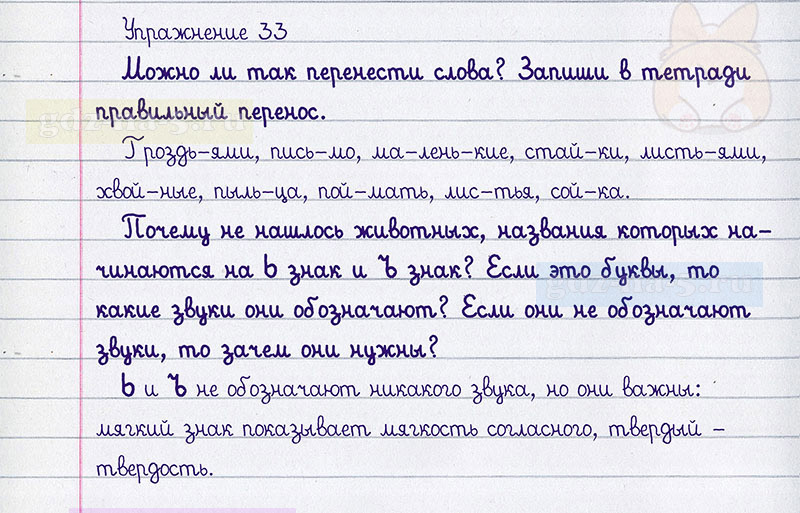 Упражнение 33
Можно ли так перенести слова? Запиши в тетради
правильный перенос.
Гроздь–ями, пись–мо, ма–лень–кие, стай–ки, листь–ями,
хвой–ные, пыль–ца, пой–мать, лис–тья, сой–ка.
Почему не нашлось животных, названия которых на–
чинаются на Ь знак и Ъ знак? Если это буквы, то
какие звуки они обозначают? Если они не обозначают
звуки, то зачем они нужны?
Ь и Ъ не обозначают никакого звука, но они важны:
мягкий знак показывает мягкость согласного, твердый –
твердость.